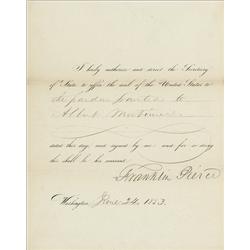 I hereby authorize and direct the Secretary
of State to affix the seal of the United States to
the pardon granted to
Albert
dated this day, and signed by me: and for so doing
this shall be his warrant.
Franklin Pierce
Washington, June 24, 1853.